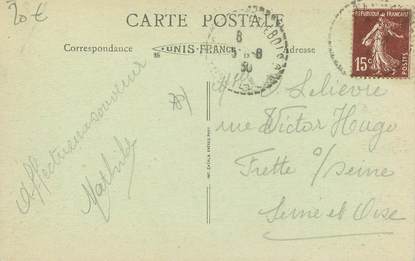 20€
CARTE POSTALE
Correspondance
UNIS-FRANCE
Adresse
RÉPUBLIQUE FRANÇAISE
15c
POSTES
8
5-8
30
84
Affectueux souvenir
Mathilde
Lelievre
rue Victor Hugo
Frette s/Seine
Seine et Oise